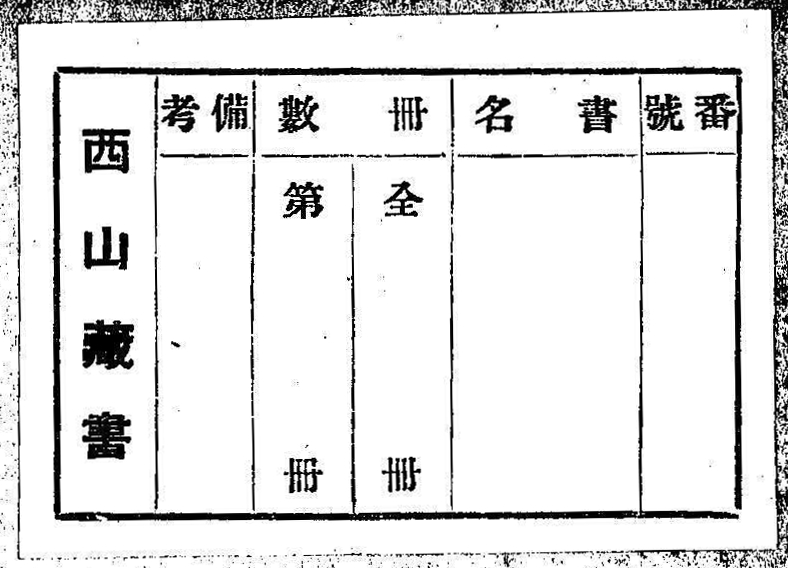 番號
書名
冊數
全 冊
第 冊
備考
西山藏書